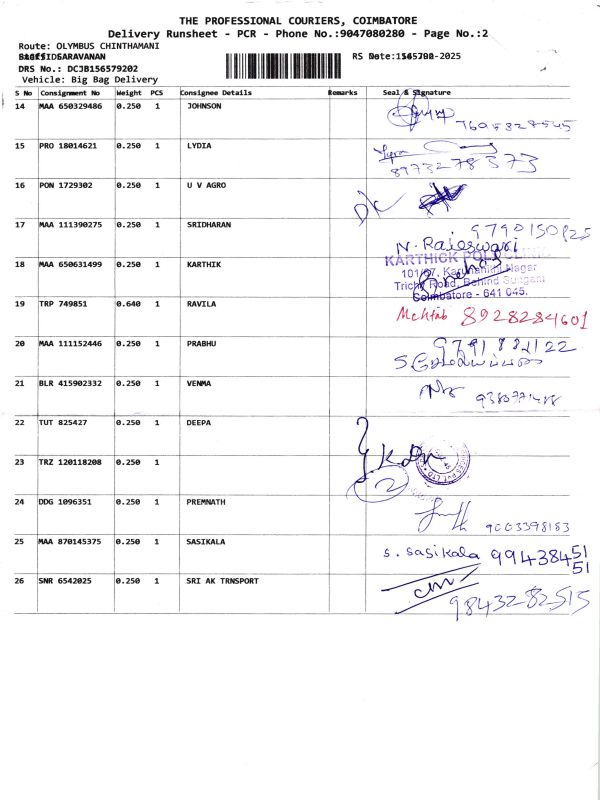 THE PROFESSIONAL COURIERS, COIMBATORE
Delivery Runsheet - PCR - Phone No.:9047080280 - Page No.:2
Route: OLYMBUS CHINTHAMANI
SARAVANAN RS -2025
DRS No.: DCJB156579202
Vehicle: Big Bag Delivery
S No Consignment No Weight PCS Consignee Details Remarks Seal & Signature
14 MAA 650329486 0.250 1 JOHNSON
15 PRO 18014621 0.250 1 LYDIA 8973278373
16 PON 1729302 0.250 1 U V AGRO
17 MAA 111390275 0.250 1 SRIDHARAN 9790150825
N. Rajeswari
18 MAA 650631499 0.250 1 KARTHIK KARTHICK
Nagar
Road, Behind
Coimbatore - 641 045.
19 TRP 749851 0.640 1 RAVILA Mehtab 8928284601
20 MAA 111152446 0.250 1 PRABHU
21 BLR 415902332 0.250 1 VENMA
22 TUT 825427 0.250 1 DEEPA
23 TRZ 120118208 0.250 1
24 DDG 1096351 0.250 1 PREMNATH 9003398183
25 MAA 870145375 0.250 1 SASIKALA S. Sasikala 99438451
51
26 SNR 6542025 0.250 1 SRI AK TRNSPORT
9843282515